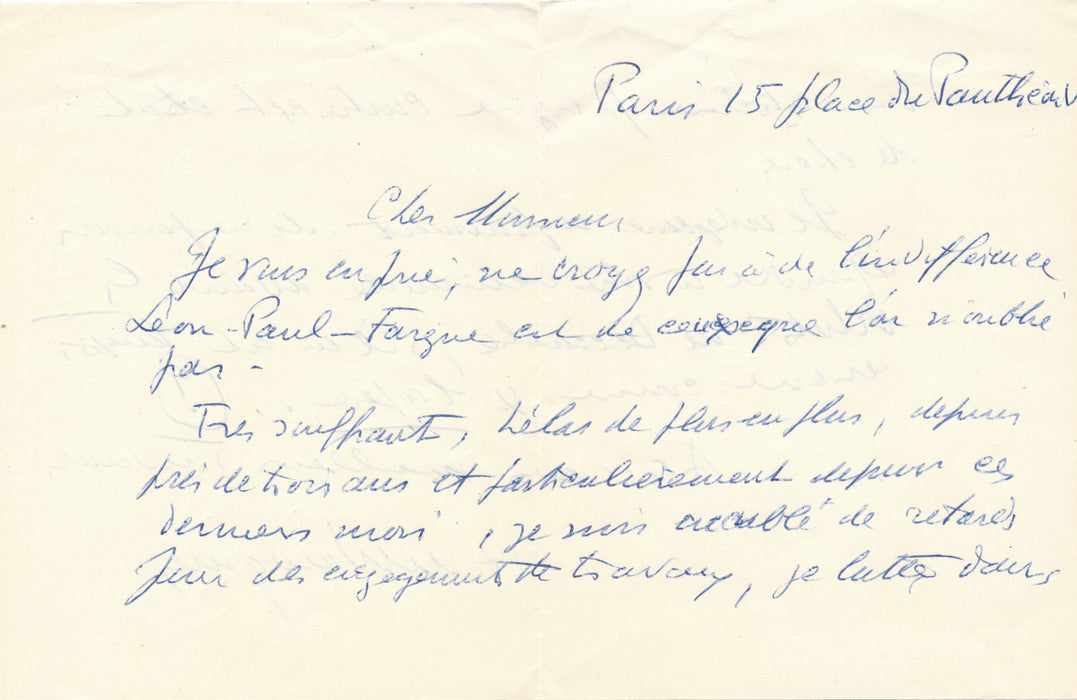 Paris 15 place du Panthéon V
Cher Monsieur
Je vous en prie, ne croyez pas à de l'indifférence
Léon-Paul-Fargue est de ceux que l'on n'oublie
pas -
Très souffrant, hélas de plus en plus, depuis
près de trois ans et particulièrement depuis ces
derniers mois, je suis accablé de retards
pour des engagements de travaux, je lutte dans